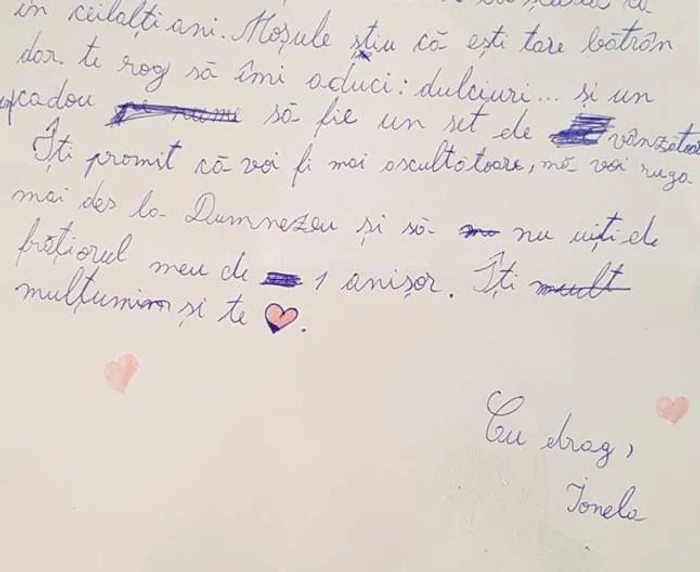 în ceilalți ani. Moșule știu că ești tare bătrân
dar. te rog să îmi aduci: dulciuri... și un
cadou să fie un set de vânzătoare
Îți promit că voi fi mai ascultătoare, mă voi ruga
mai des la Dumnezeu și să nu uiți de
frățiorul meu de 1 anișor. Îți
mulțumim și te ❤.
Cu drag,
Ionela